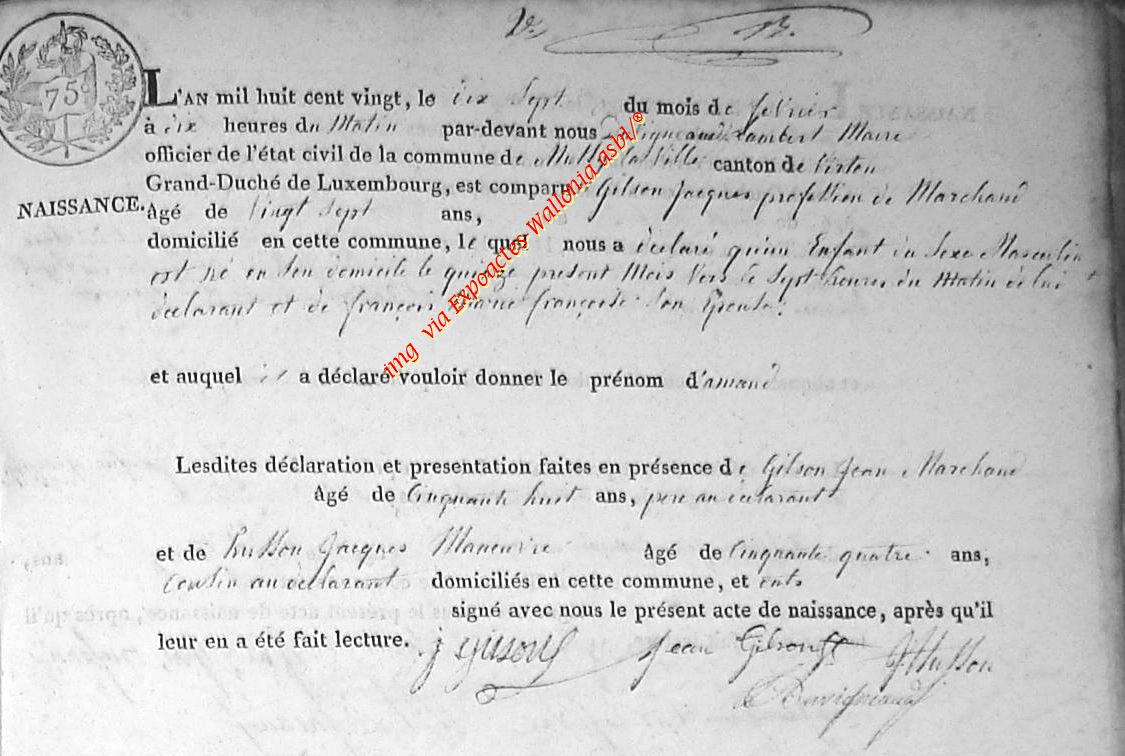 75
L'AN mil huit cent vingt, le dix Sept du mois de février
à dix heures du Matin par-devant nous Lambert Maire
officier de l'état civil de la commune de Mussy la Ville canton de Virton
Grand-Duché de Luxembourg, est comparu Gilson Jacques profession de Marchand
NAISSANCE. Agé de vingt Sept ans,
domicilié en cette commune, le quel nous a déclaré qu'un Enfant du Sexe Masculin
est né en Son domicile le quinze present Mois vers le Sept heures du Matin de lui
declarant et de françois Marie françoise Son Epouse.
et auquel il a déclaré vouloir donner le prénom d'amand
Lesdites déclaration et presentation faites en présence de Gilson Jean Marchand
Agé de Cinquante huit ans, pere au declarant
et de husson Jacques Maneuvre Agé de Cinquante quatre ans,
Cousin au declarant domiciliés en cette commune, et ont
signé avec nous le présent acte de naissance, après qu'il
leur en a été fait lecture. J Gilson Jean Gilson J husson
img via Expoactes Wallonia asbl/©